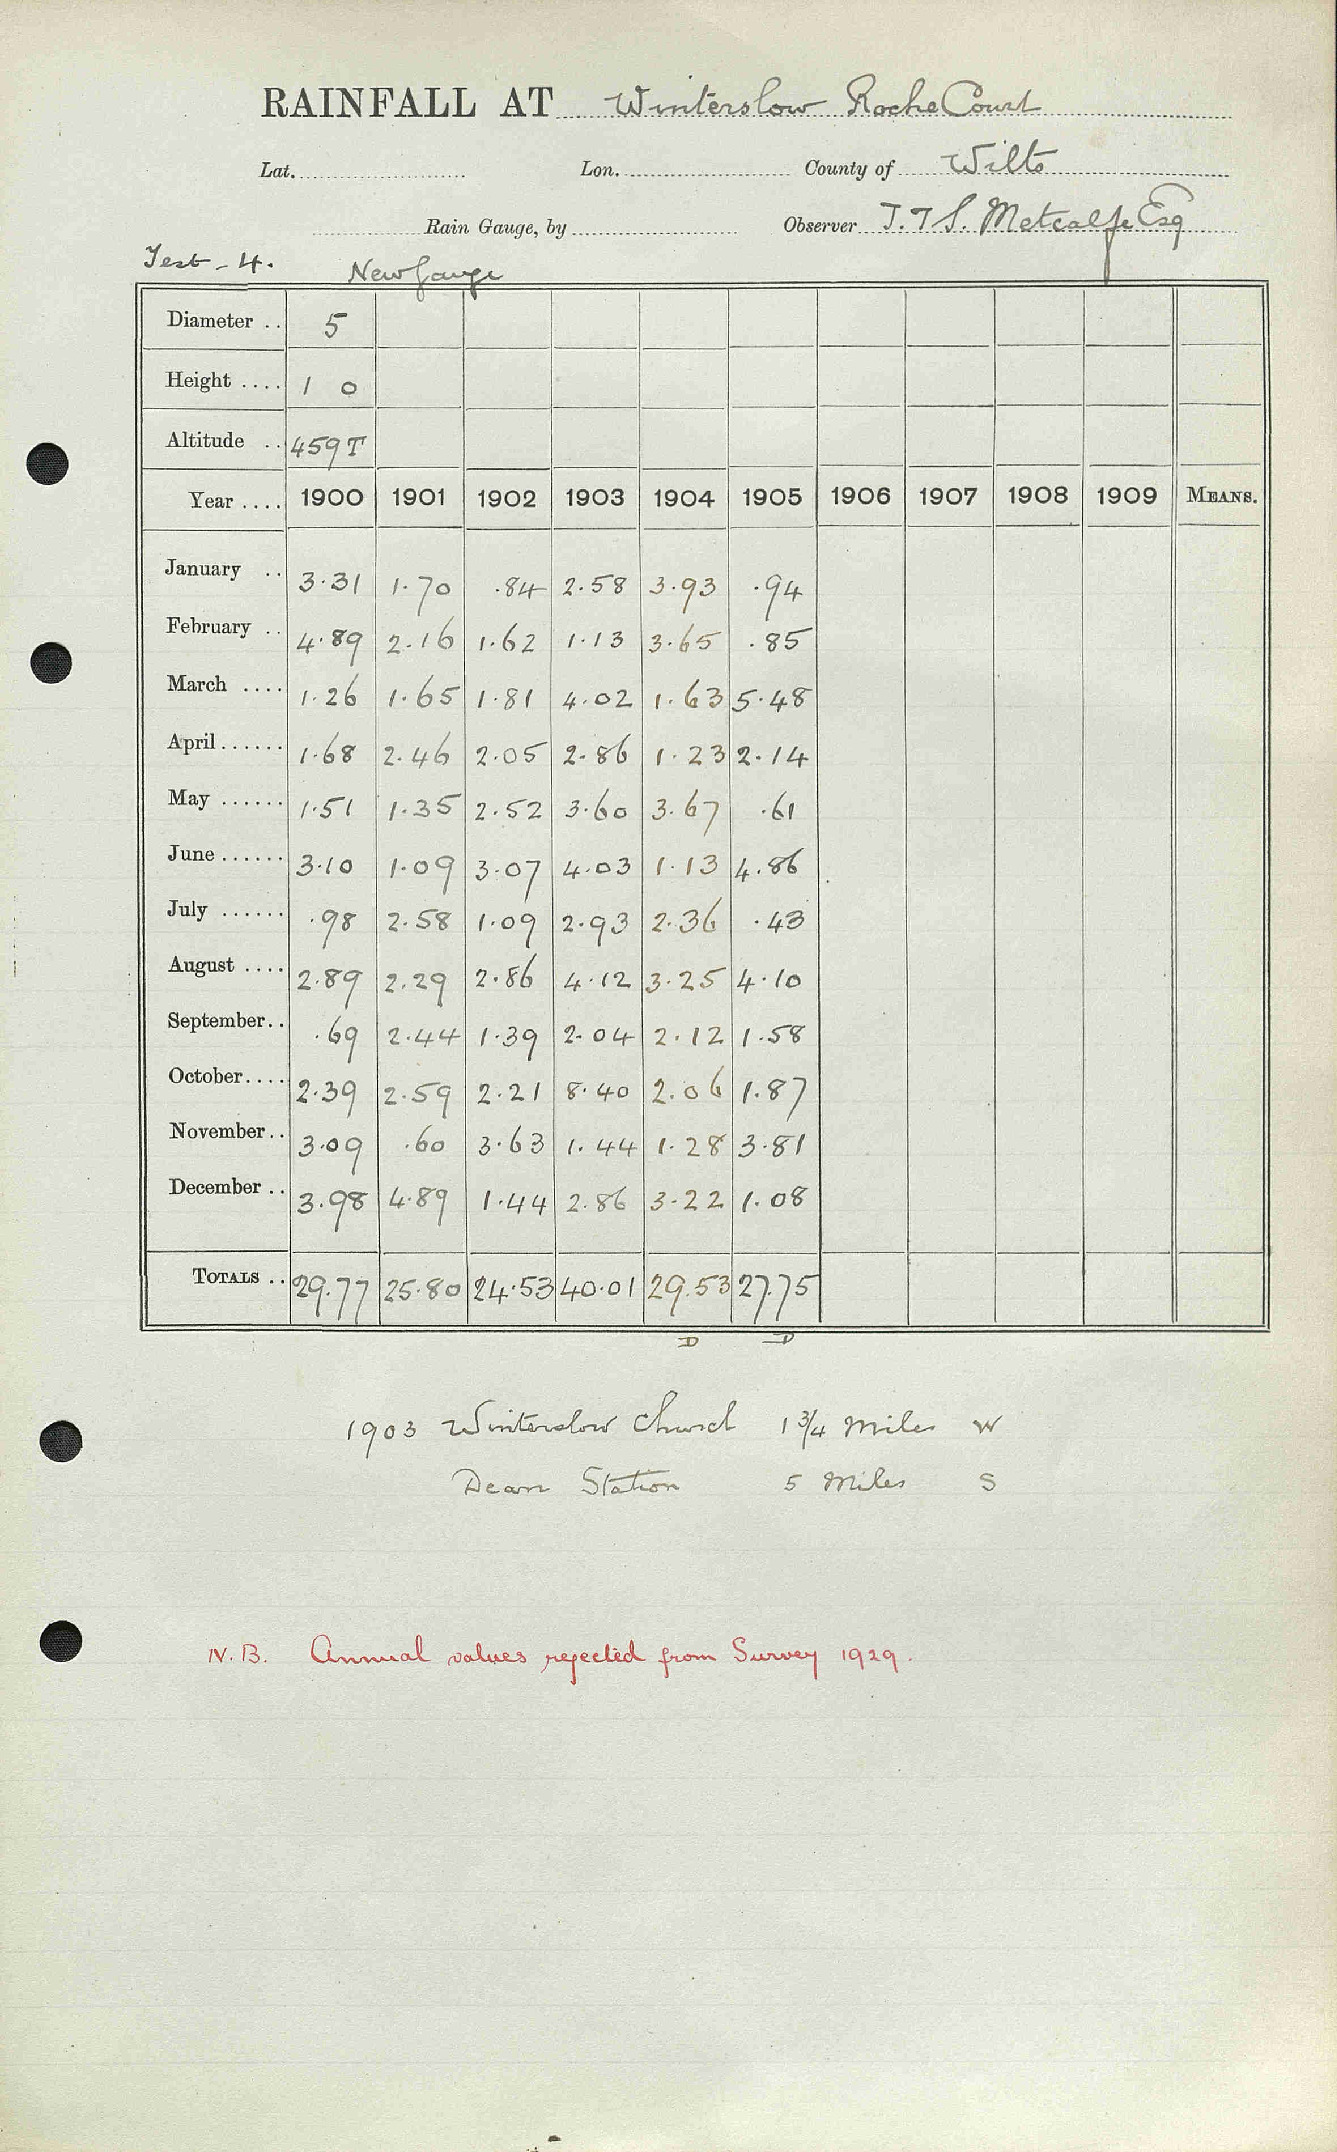 RAINFALL AT Winterslow Roche Court
Lat. Lon. County of Wilts
Rain Gauge, by Observer J. T S. Metcalfe Esq
Test - 4. New Gauge
Diameter .. 5
Height .... 1 0
Altitude .. 459 T
Year .... 1900 1901 1902 1903 1904 1905 1906 1907 1908 1909 MEANS.
January .. 3.31 1.70 .84 2.58 3.93 .94
February .. 4.89 2.16 1.62 1.13 3.65 .85
March .... 1.26 1.65 1.81 4.02 1.63 5.48
April ...... 1.68 2.46 2.05 2.86 1.23 2.14
May ...... 1.51 1.35 2.52 3.60 3.67 .61
June ...... 3.10 1.09 3.07 4.03 1.13 4.86
July ...... .98 2.58 1.09 2.93 2.36 .43
August .... 2.89 2.29 2.86 4.12 3.25 4.10
September .. .69 2.44 1.39 2.04 2.12 1.58
October .... 2.39 2.59 2.21 8.40 2.06 1.87
November .. 3.09 .60 3.63 1.44 1.28 3.81
December .. 3.98 4.89 1.44 2.86 3.22 1.08
TOTALS .. 29.77 25.80 24.53 40.01 29.53 27.75
D D
1903 Winterslow Church 1 3/4 Miles W
Dean Station 5 Miles S
N.B. Annual values rejected from Survey 1929.